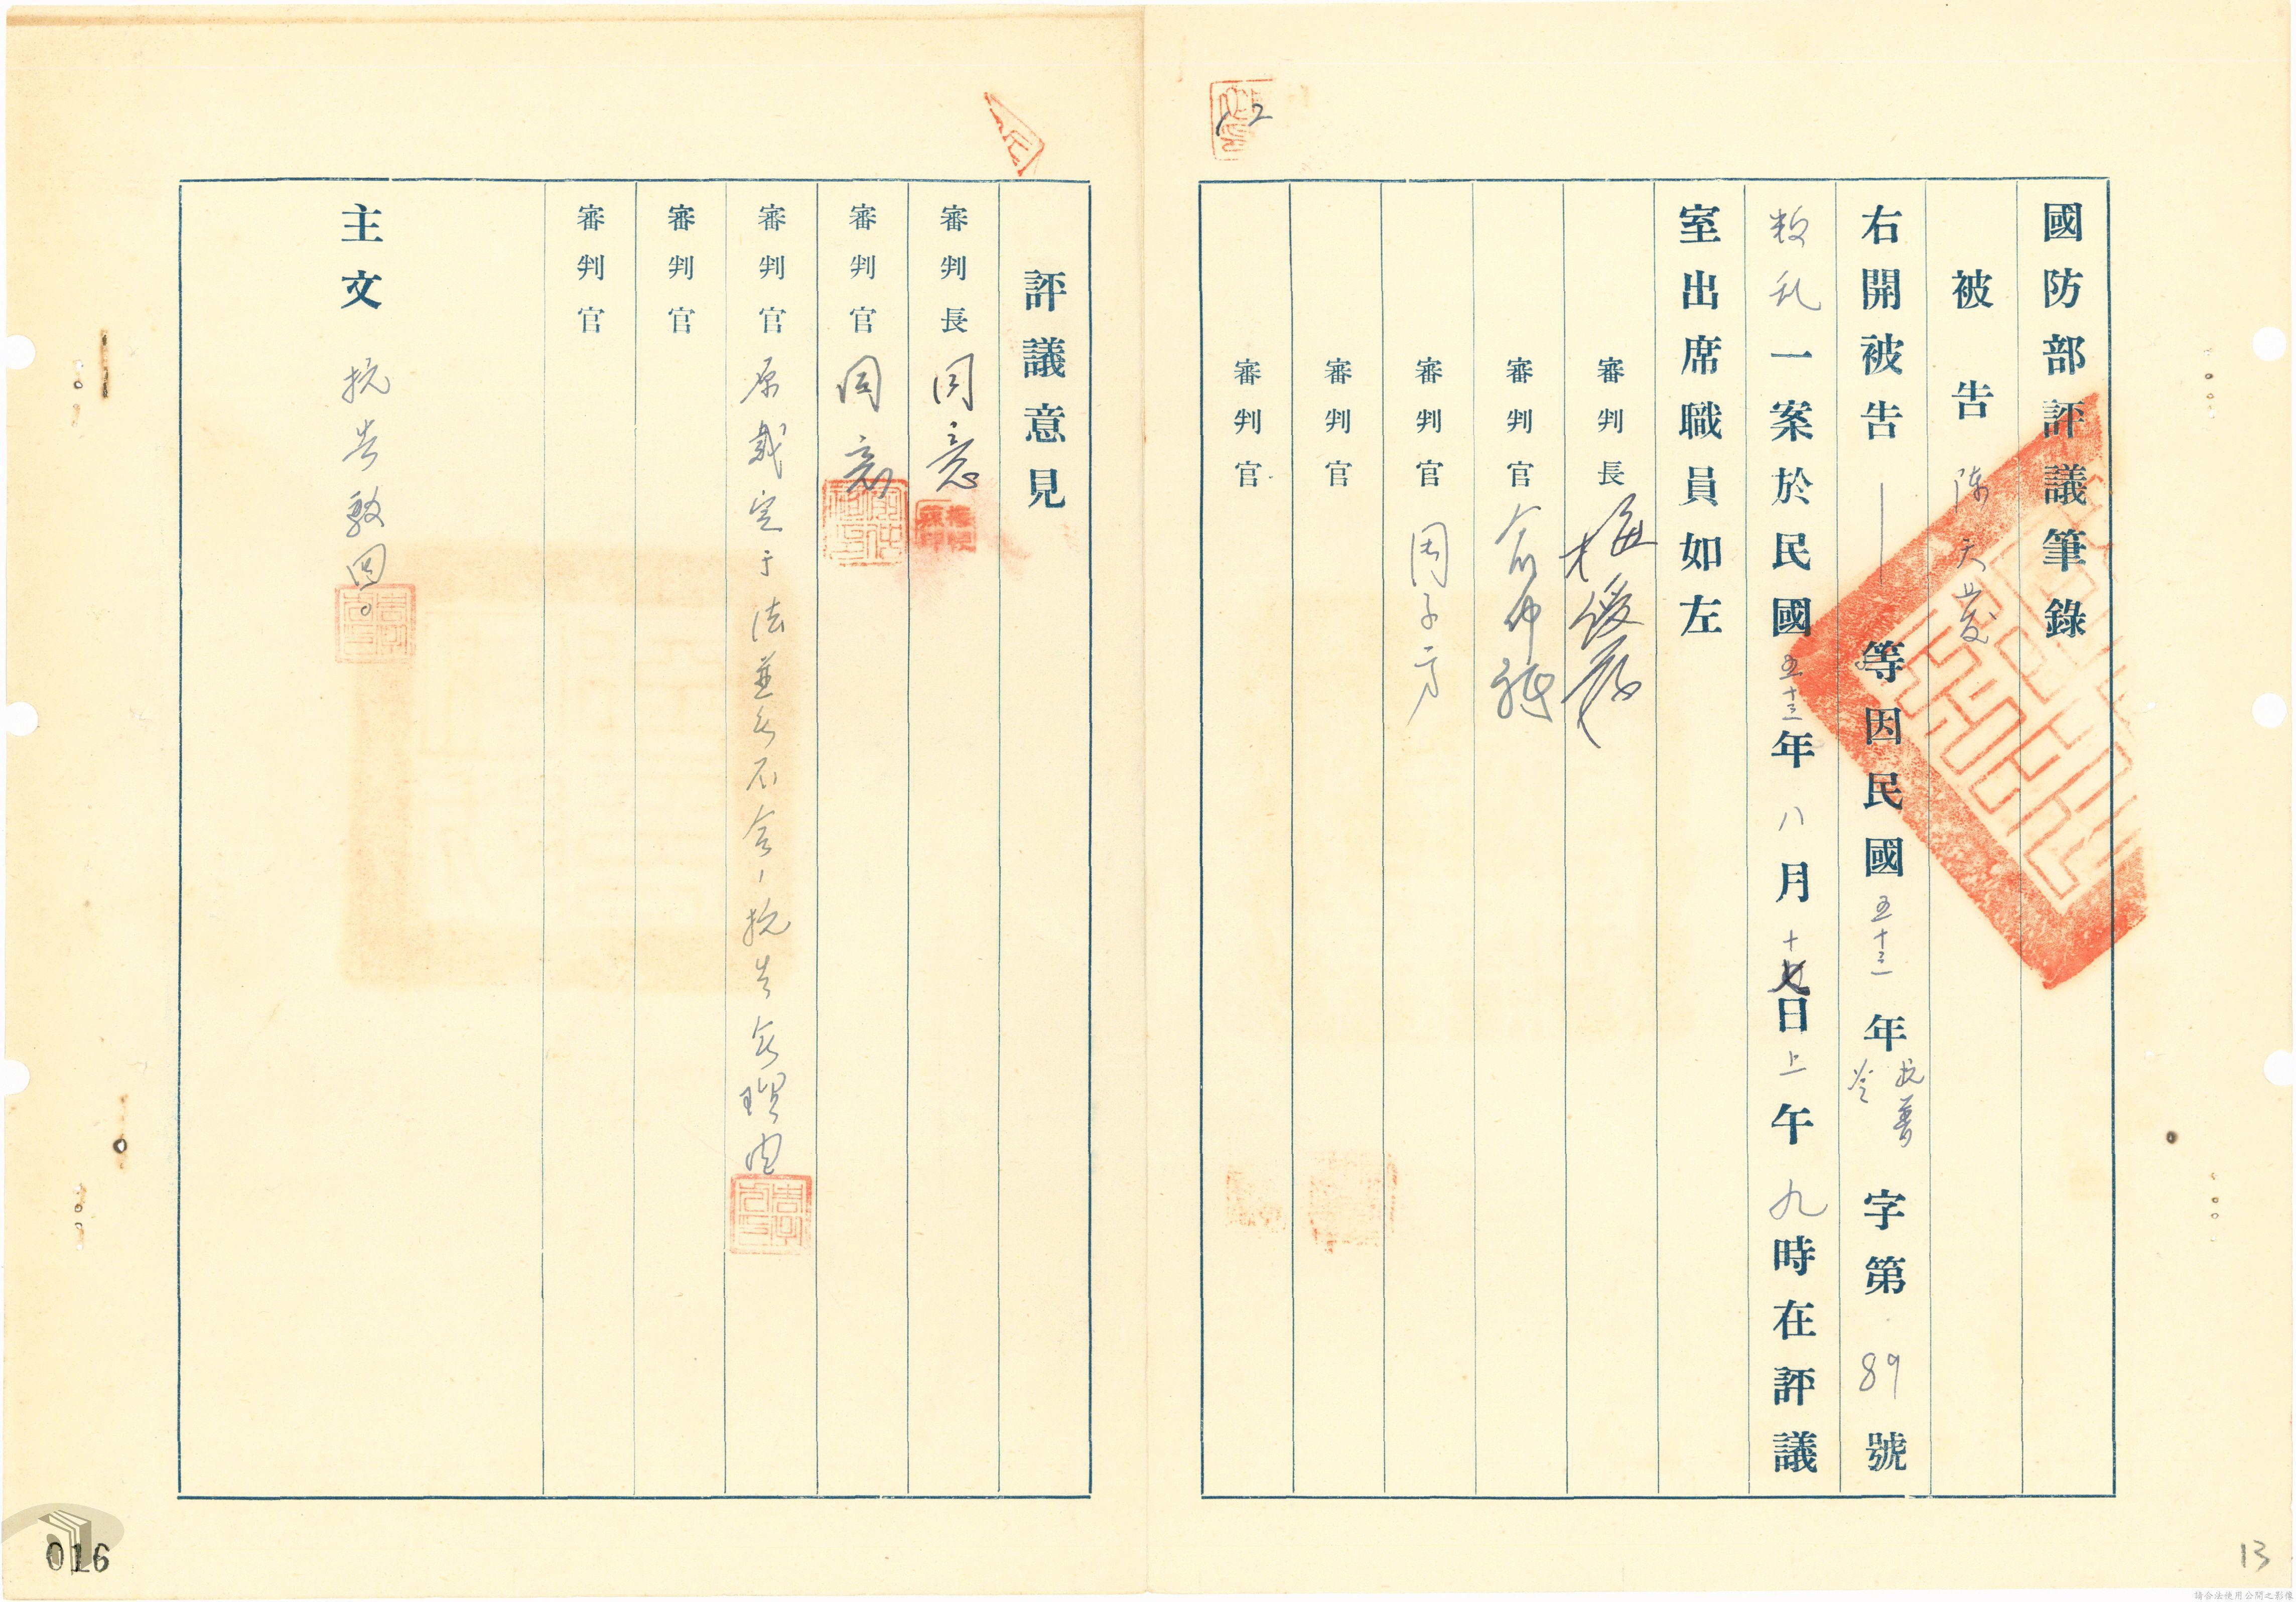 國防部評議筆錄
被告 陳天茂
右開被告 等因民國五十三年抗普字第89號
叛乱一案於民國五十三年八月十日上午九時在評議
室出席職員如左
審判長
審判官 俞仲
審判官 周子方
審判官
審判官
評議意見
審判長 同意
審判官 同意
審判官 原裁定于法並無不合，抗告無理由
審判官
審判官
主文 抗告駁回。
12
016
13
請合法使用公開之影像